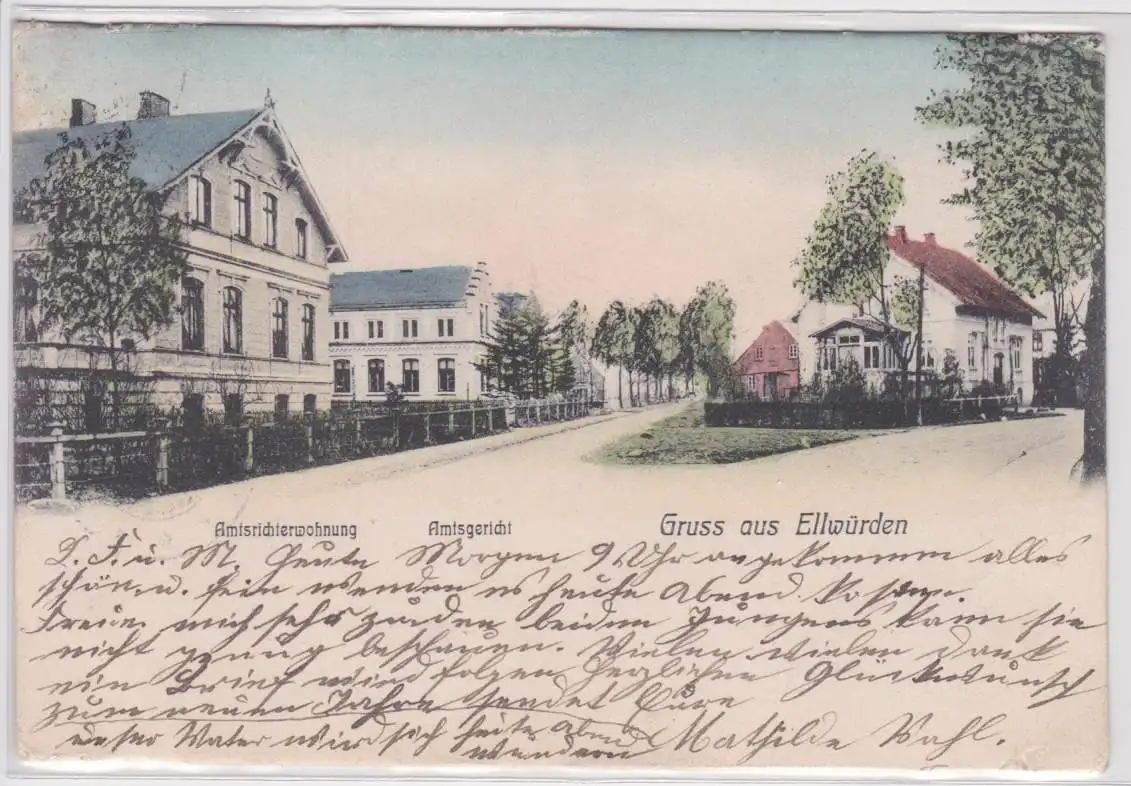 Amtsrichterwohnung Amtsgericht Gruss aus Ellwürden
L. F. u. M. Heute Morgen 9 Uhr angekommen alles
schön u. fein werden es heute Abend kosten.
Freue mich sehr zu den beiden Jungens kann sie
nicht genug beschauen. Vielen vielen Dank
ein Brief wird folgen herzlichen Glückwunsch
zum neuen Jahre sendet Eure
unser Vater wird sich heute Abend Mathilde Vahl.
wundern